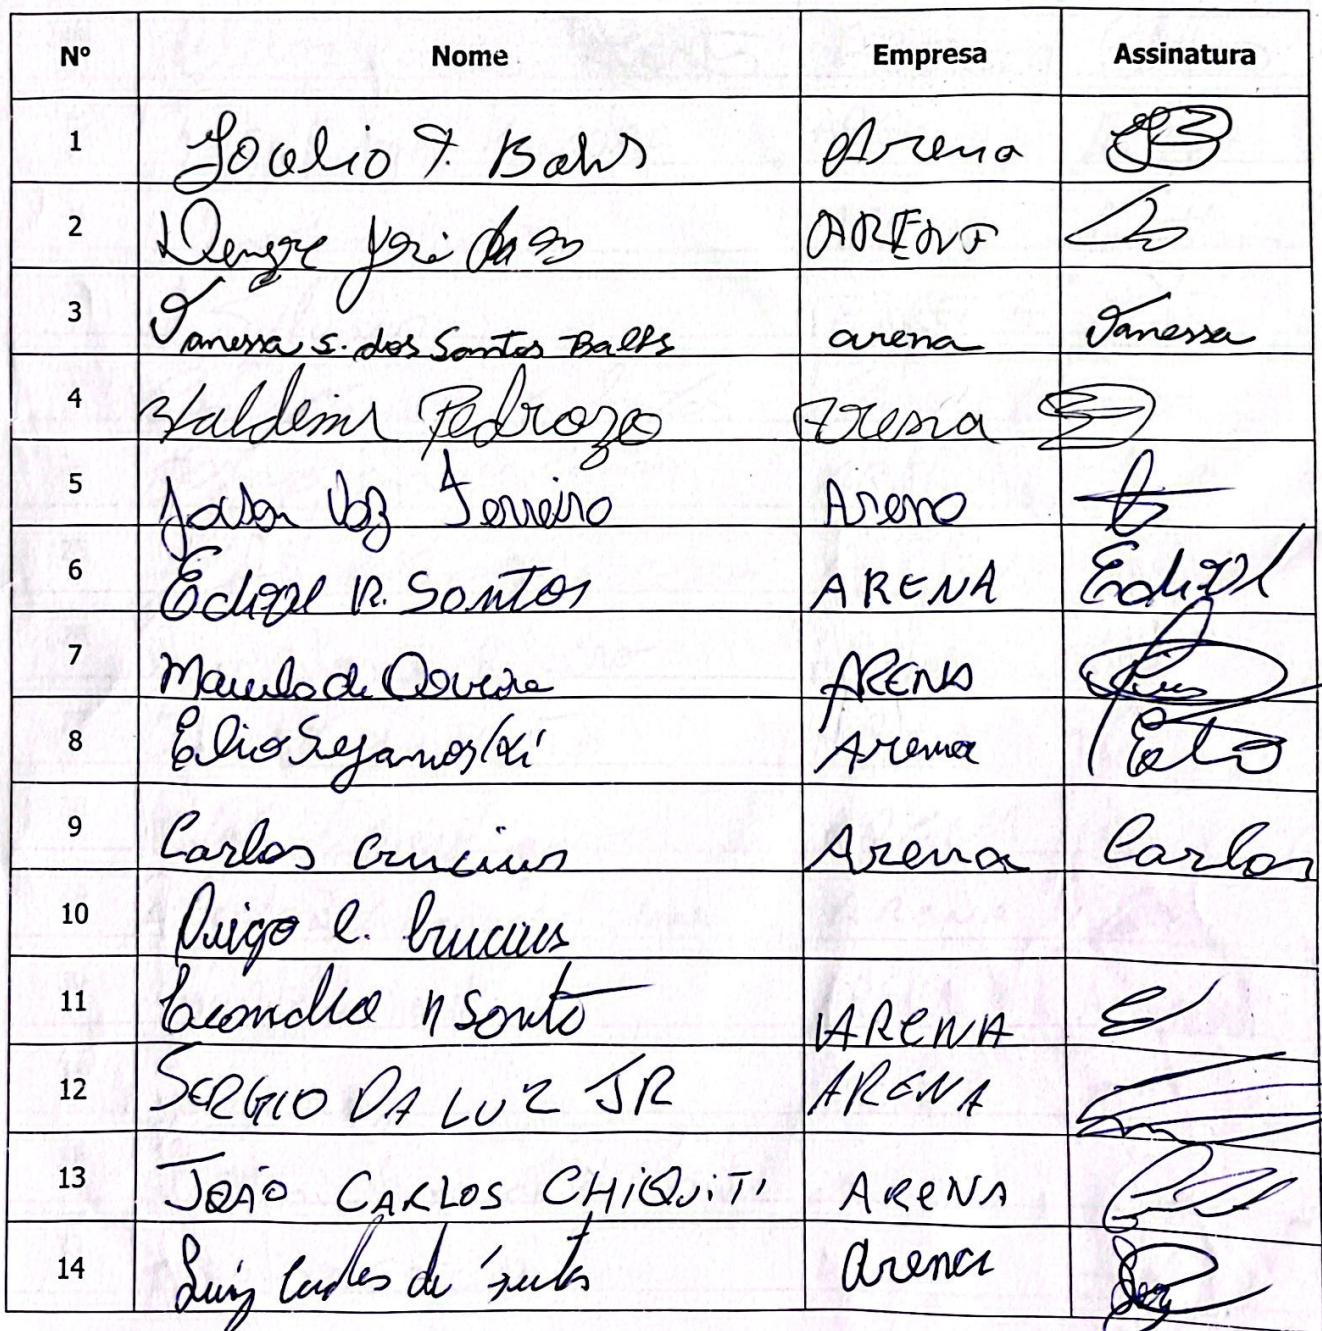 Nº Nome Empresa Assinatura
1 Jocelio F. Bahs Arena JB
2 ARENA
3 Vanessa S. dos Santos Balhs arena Vanessa
4 Valdemir Pedrozo Arena
5 Vaz Ferreira Arena
6 Edizel R. Santos ARENA Edizel
7 Marcelo de Oliveira ARENA
8 Elio Sejanoski Arema
9 Carlos Crucius Arena Carlos
10 C. Crucius
11 Leondra n Santo ARENA
12 SERGIO DA LUZ JR ARENA
13 JOÃO CARLOS CHIQUITI ARENA
14 Luiz Carlos de arena